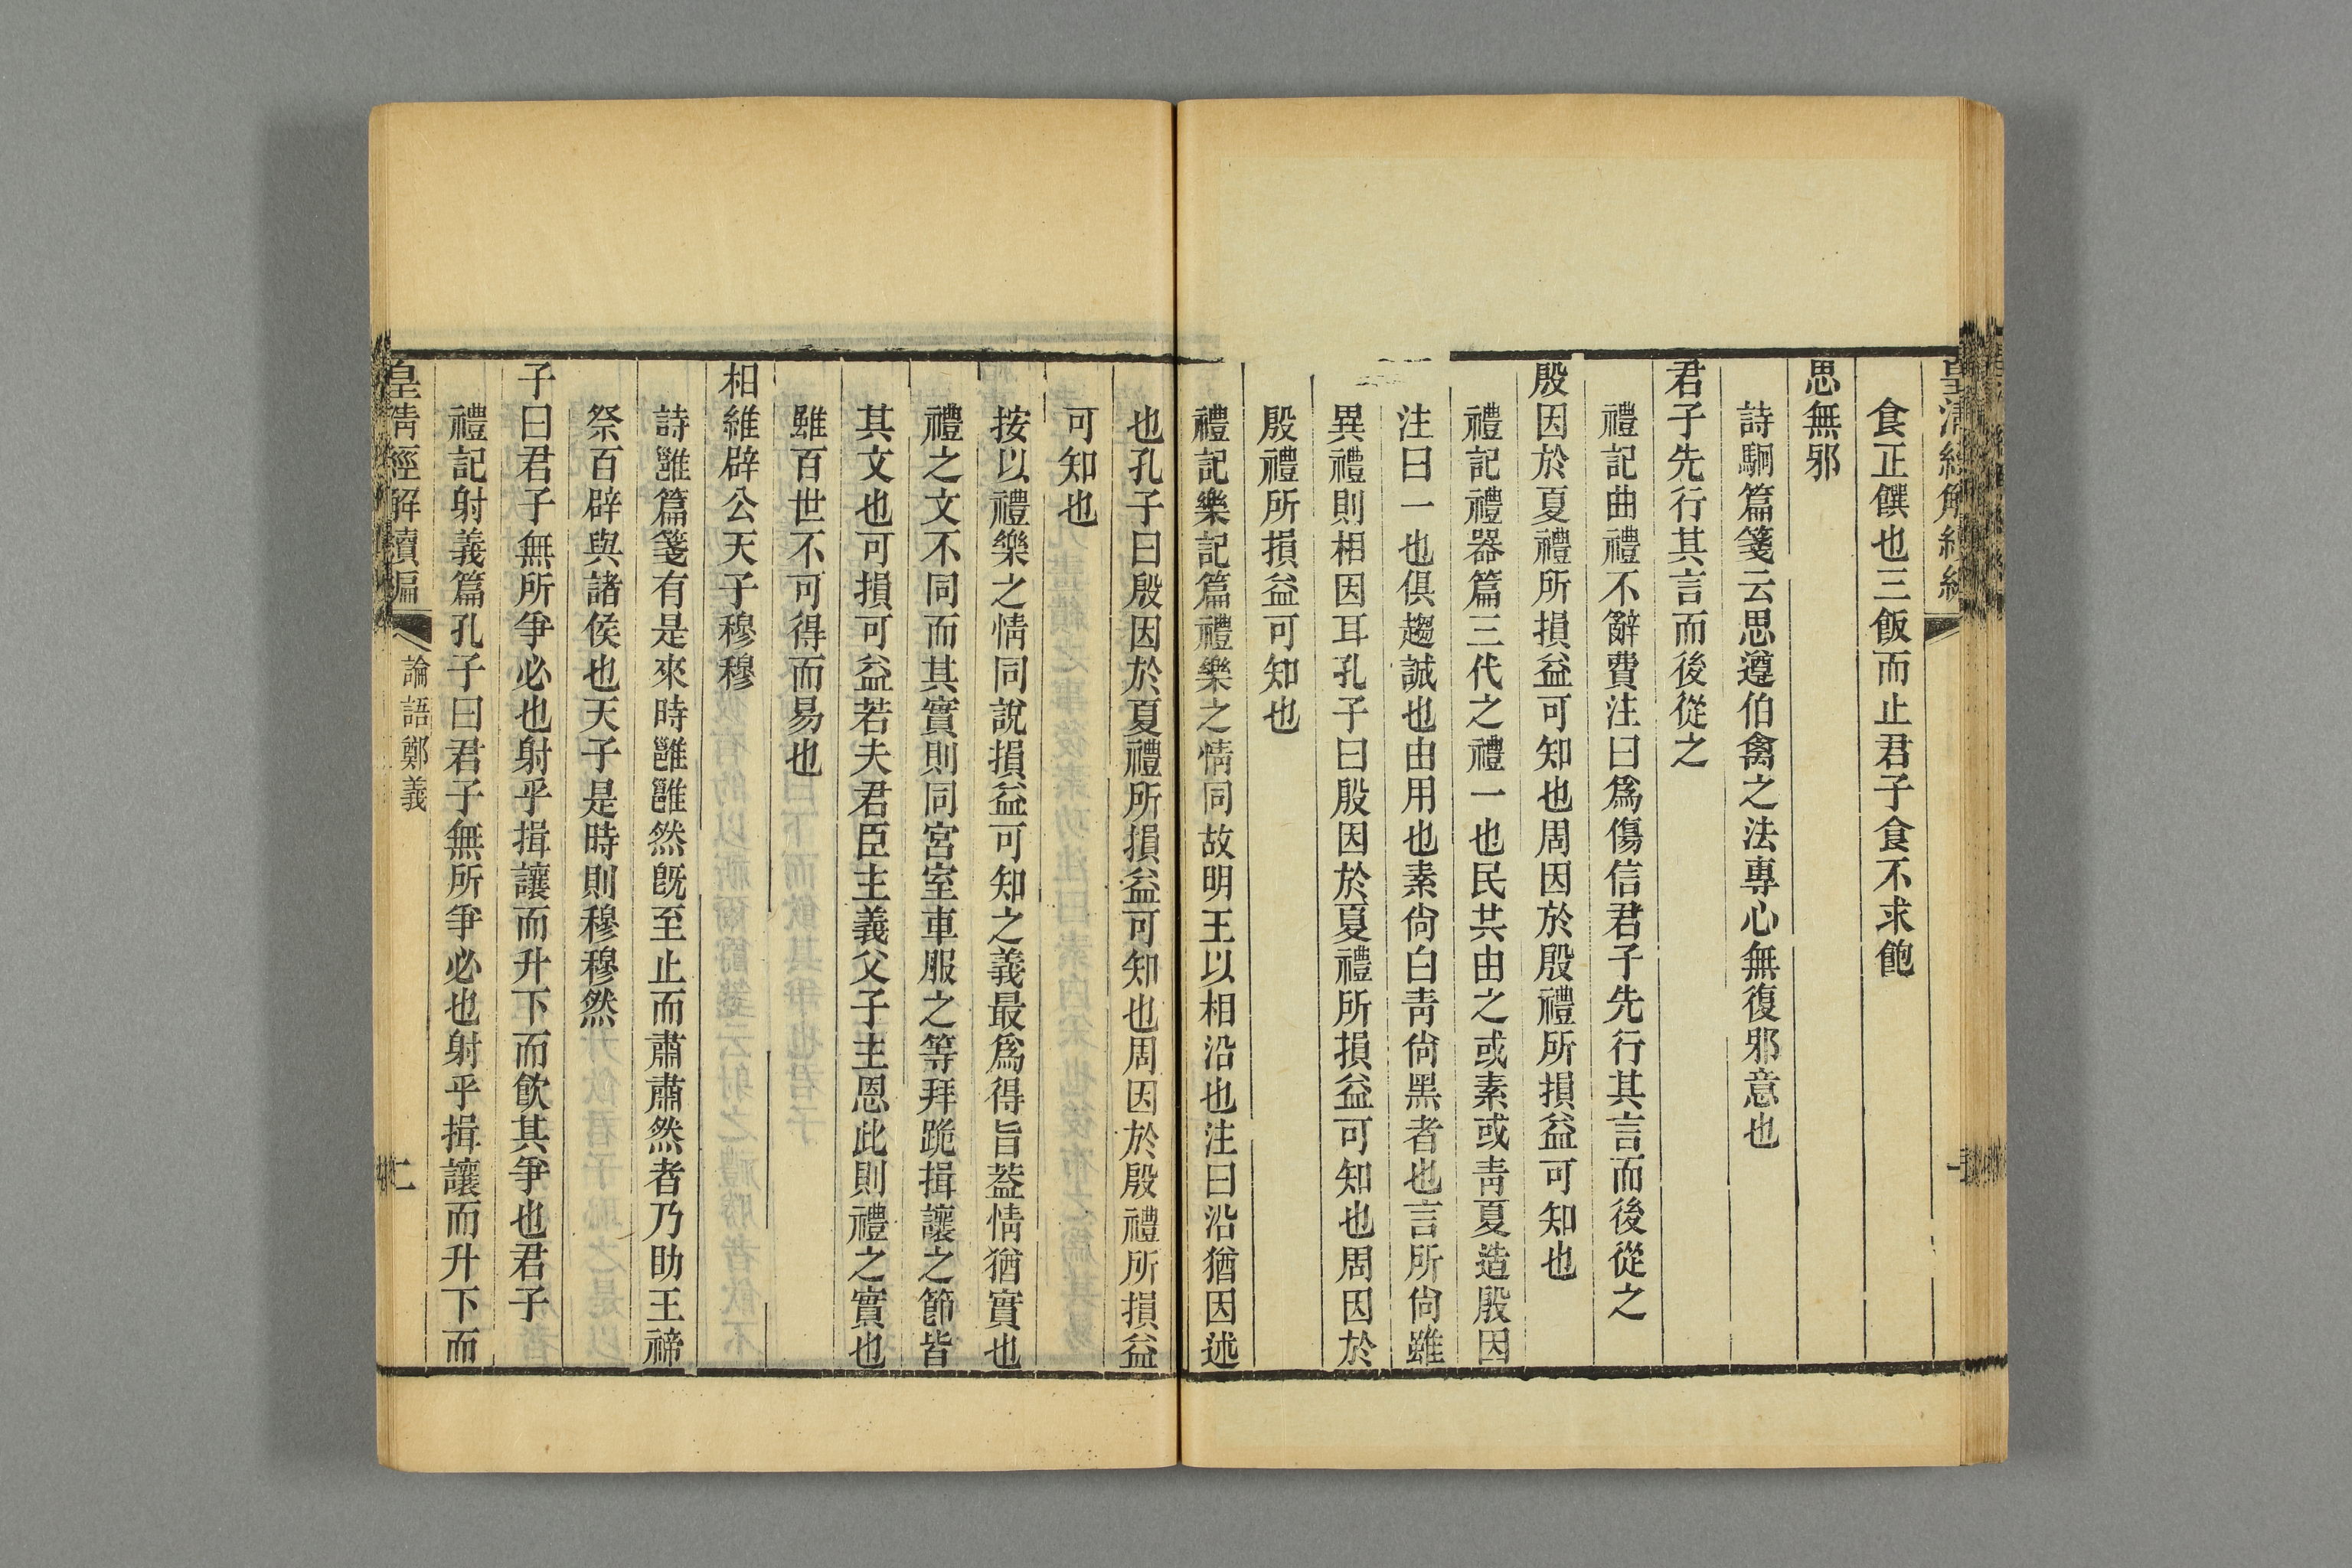 食正饌也三飯而止君子食不求飽
思無邪
詩駉篇箋云思遵伯禽之法專心無復邪意也
君子先行其言而後從之
禮記曲禮不辭費注曰爲傷信君子先行其言而後從之
殷因於夏禮所損益可知也周因於殷禮所損益可知也
禮記禮器篇三代之禮一也民共由之或素或靑夏造殷因
注曰一也俱趨誠也由用也素尙白靑尙黑者也言所尙雖
異禮則相因耳孔子曰殷因於夏禮所損益可知也周因於
殷禮所損益可知也
禮記樂記篇禮樂之情同故明王以相沿也注曰沿猶因述
也孔子曰殷因於夏禮所損益可知也周因於殷禮所損益
可知也
按以禮樂之情同說損益可知之義最爲得旨葢情猶實也
禮之文不同而其實則同宮室車服之等拜跪揖讓之節皆
其文也可損可益若夫君臣主義父子主恩此則禮之實也
雖百世不可得而易也
相維辟公天子穆穆
詩雝篇箋有是來時雝雝然旣至止而肅肅然者乃助王禘
祭百辟與諸侯也天子是時則穆穆然
子曰君子無所爭必也射乎揖讓而升下而飮其爭也君子
禮記射義篇孔子曰君子無所爭必也射乎揖讓而升下而
皇淸經解續編
論語鄭義
二